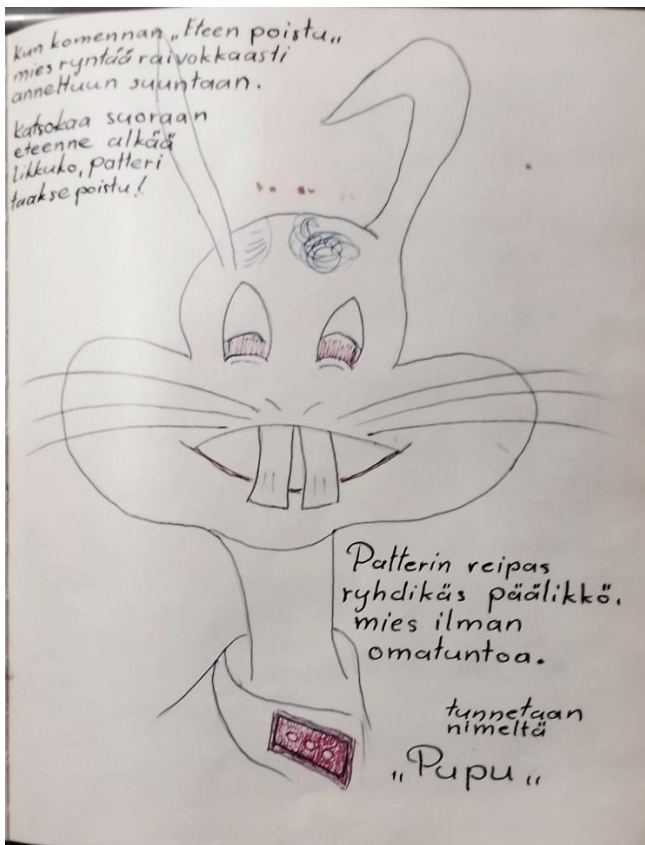 kun komennan „Eteen poistu„
mies ryntää raivokkaasti
annettuun suuntaan.
katsokaa suoraan
eteenne älkää
likkuko, patteri
taakse poistu!
Patterin reipas
ryhdikäs päälikkö.
mies ilman
omatuntoa.
tunnetaan
nimeltä
„Pupu„